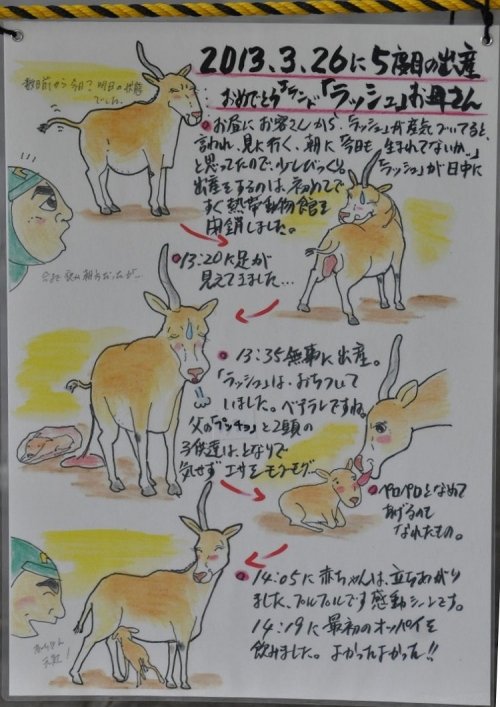 2013.3.26に5度目の出産
おめでとう「ランド」「ラッシュ」お母さん
数日前から今日?明日の状態
でした。
お昼にお客さんから、「ラッシュ」が産気づいてると、
言われ、見に行く、朝に「今日も生まれてないか…」
と思ってたので、少しびっくり。「ラッシュ」が日中に
出産をするのは、初めてで
すぐ熱帯動物館を
閉鎖しました。
13:20に足が
見えてきました…
13:35無事に出産。
「ラッシュ」は、おちついて
いました。ベテランですね。
父の「アッチョ」と2頭の
子供達は、となりで
気せずエサをモグモグ…
ペロペロとなめて
あげるのも
なれたもの。
14:05に赤ちゃんは、立ちあがり
ました、プルプルです感動シーンです。
14:19に最初のオッパイを
飲みました。よかったよかった!!